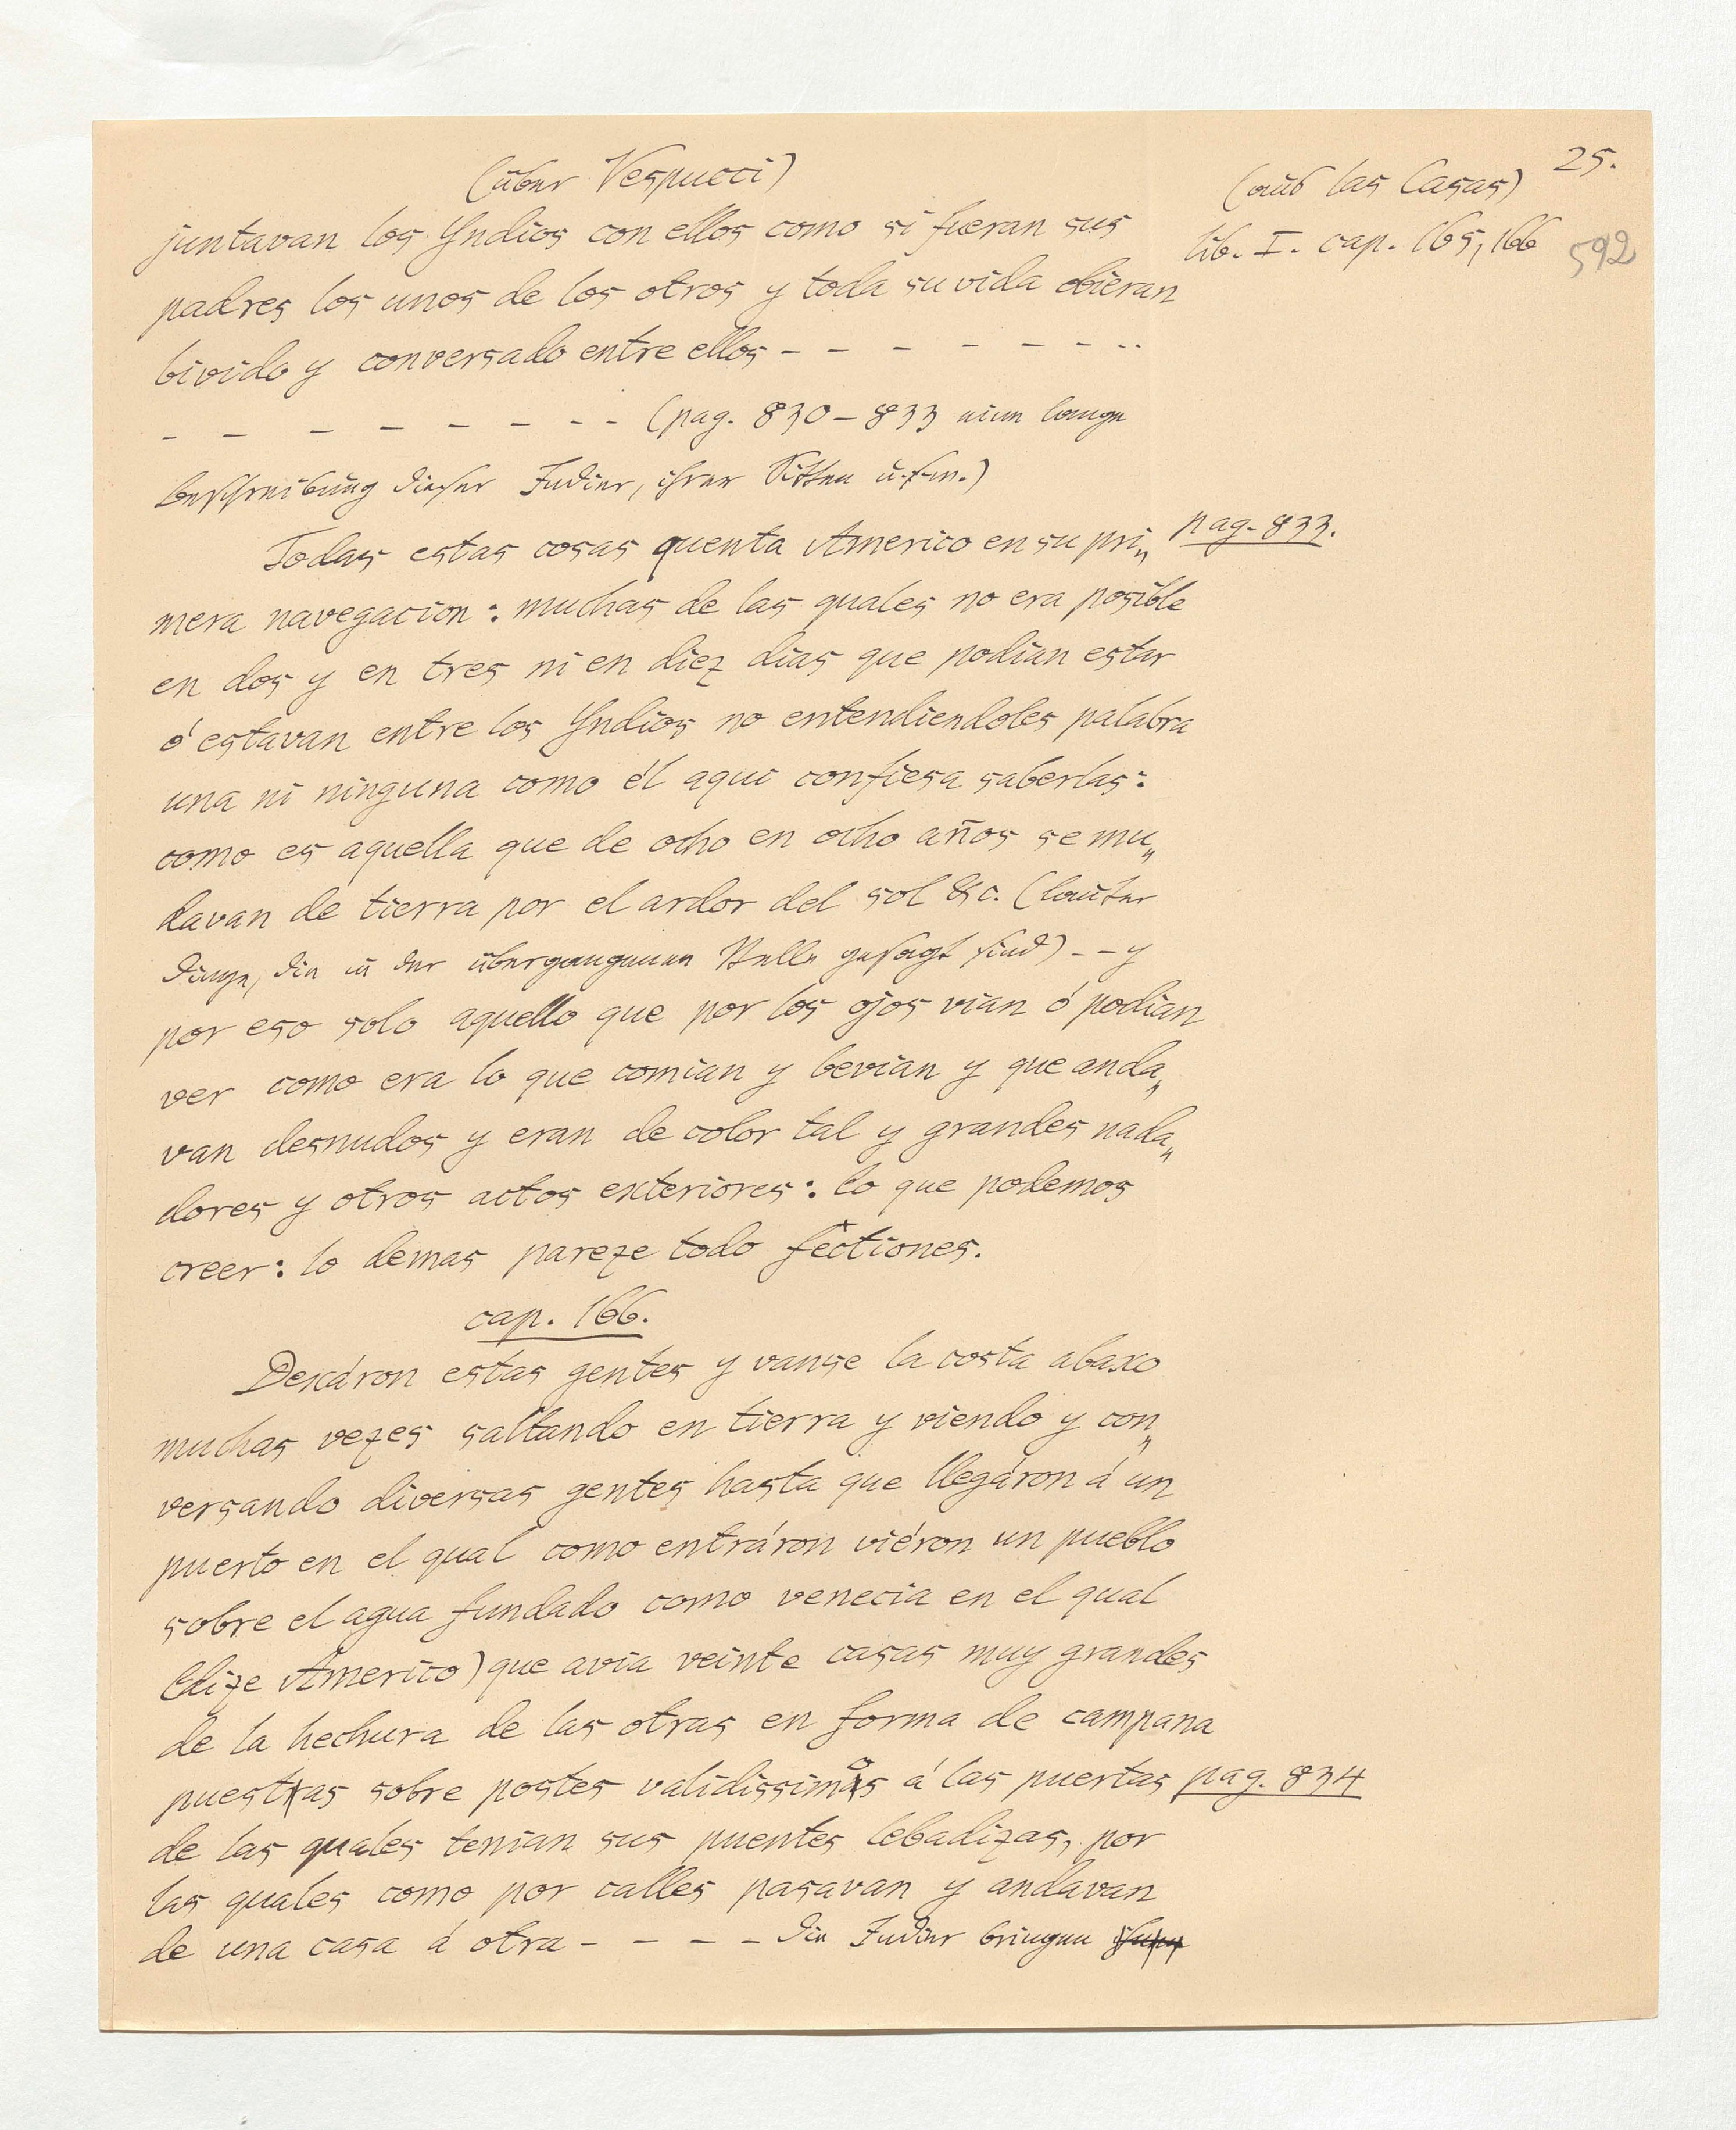 25.
(über Vespucci)
(aus las Casas)
lib. I. cap. 165, 166
592
juntavan los Yndios con ellos como si fueran sus
padres los unos de los otros y toda su vida obieran
bivido y conversado entre ellos - - - - - - - - -
- - - - - - - - - (pag. 830-833 eine lange
Beschreibung dieser Indier, ihrer Sitten u.s.w.)
Todas estas cosas quenta Americo en su pri„
pag. 833.
mera navegacion: muchas de las quales no era posible
en dos y en tres ni en diez dias que podian estar
ó estavan entre los Yndios no entendiendoles palabra
una ni ninguna como él aqui confiesa saberlas:
como es aquella que de ocho en ocho años se mu„
davan de tierra por el ardor del sol &c. (lauter
Dinge, die in der übergangenen Stelle gesagt sind) - - y
por eso solo aquello que por los ojos vian ó podian
ver como era lo que comian y bevian y que anda„
van desnudos y eran de color tal y grandes nada„
dores y otros actos exteriores: lo que podemos
creer: lo demas pareze todo fectiones.
cap. 166.
Dexáron estas gentes y vanse la costa abaxo
muchas vezes saltando en tierra y viendo y con„
versando diversas gentes hasta que llegáron á un
puerto en el qual como entráron viéron un pueblo
sobre el agua fundado como venecia en el qual
(dize Americo) que avia veinte casas muy grandes
de la hechura de las otras en forma de campana
puestas sobre postes validissimos á las puertas
pag. 834
de las quales tenian sus puentes lebadizas, por
las quales como por calles pasavan y andavan
de una casa á otra - - - - - die Indier bringen